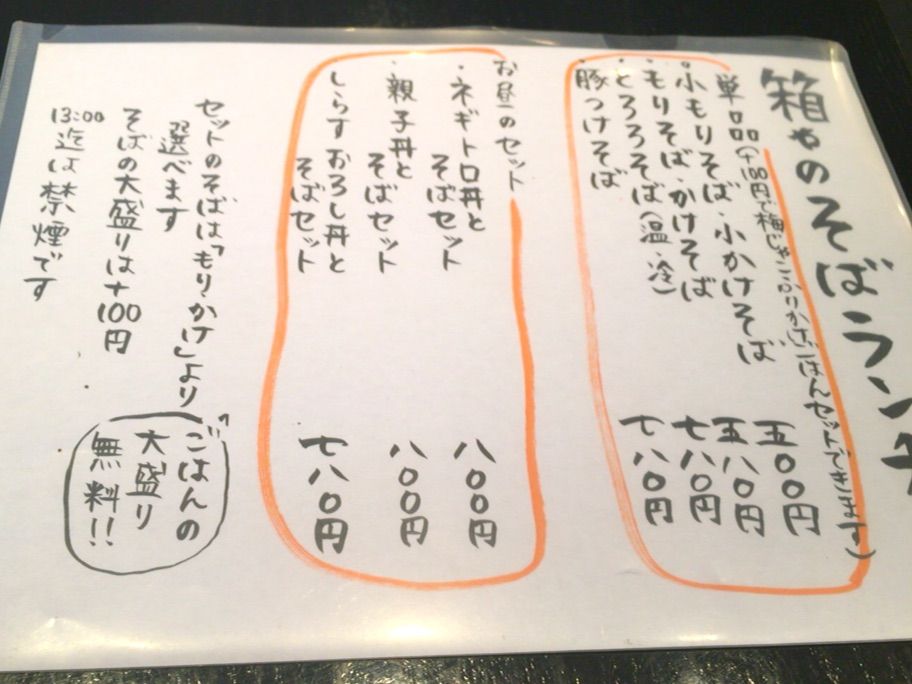 箱やのそばランチ
単品(+100円で梅じゃこふりかけごはんセットできます)
・小もりそば・小かけそば 五〇〇円
・もりそば・かけそば 五八〇円
・とろろそば(温・冷) 七八〇円
・豚つけそば 七八〇円
お昼のセット
・ネギトロ丼と
そばセット 八〇〇円
・親子丼と
そばセット 八〇〇円
・しらすおろし丼と
そばセット 七八〇円
セットのそばは「もり・かけ」より
選べます
そばの大盛りは+100円
13:00迄は禁煙です
ごはんの
大盛り
無料!!